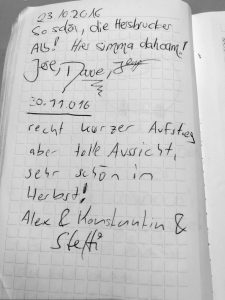 23.10.2016
So schön, die Hersbrucker
Alb! Hier simma dahoam!
Jose, Dave,
30.11.016
recht kurzer Aufstieg
aber tolle Aussicht,
sehr schön im
Herbst!
Alex & Konstantin &
Steffi